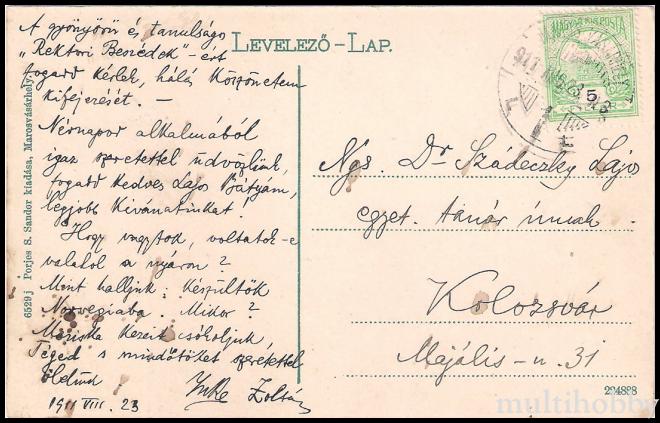 A gyönyörű és tanulságos
„Rektori Beszédek"-ért
fogadd kérlek, hálás köszönetem
kifejezését. —
Névnapod alkalmából
igaz szeretettel üdvözlünk,
fogadd kedves Lajos Bátyám,
legjobb kivánatinkat!
Hogy vagytok, voltatok-e
valahol a nyáron?
Mint halljuk: készültök
Norvegiaba. Mikor?
Mariska kezeit csókoljuk,
Téged s mindötöket szeretettel
ölelünk
1911 VIII. 23 Zoltán
LEVELEZŐ-LAP.
MAGYAR KIR. POSTA
5
Ngs. Dr Szádeczky Lajos
egyet. tanár úrnak.
Kolozsvár
Majális-u. 31
6529 j Porjes S. Sandor kiadása, Marosvásárhely.
multihobby